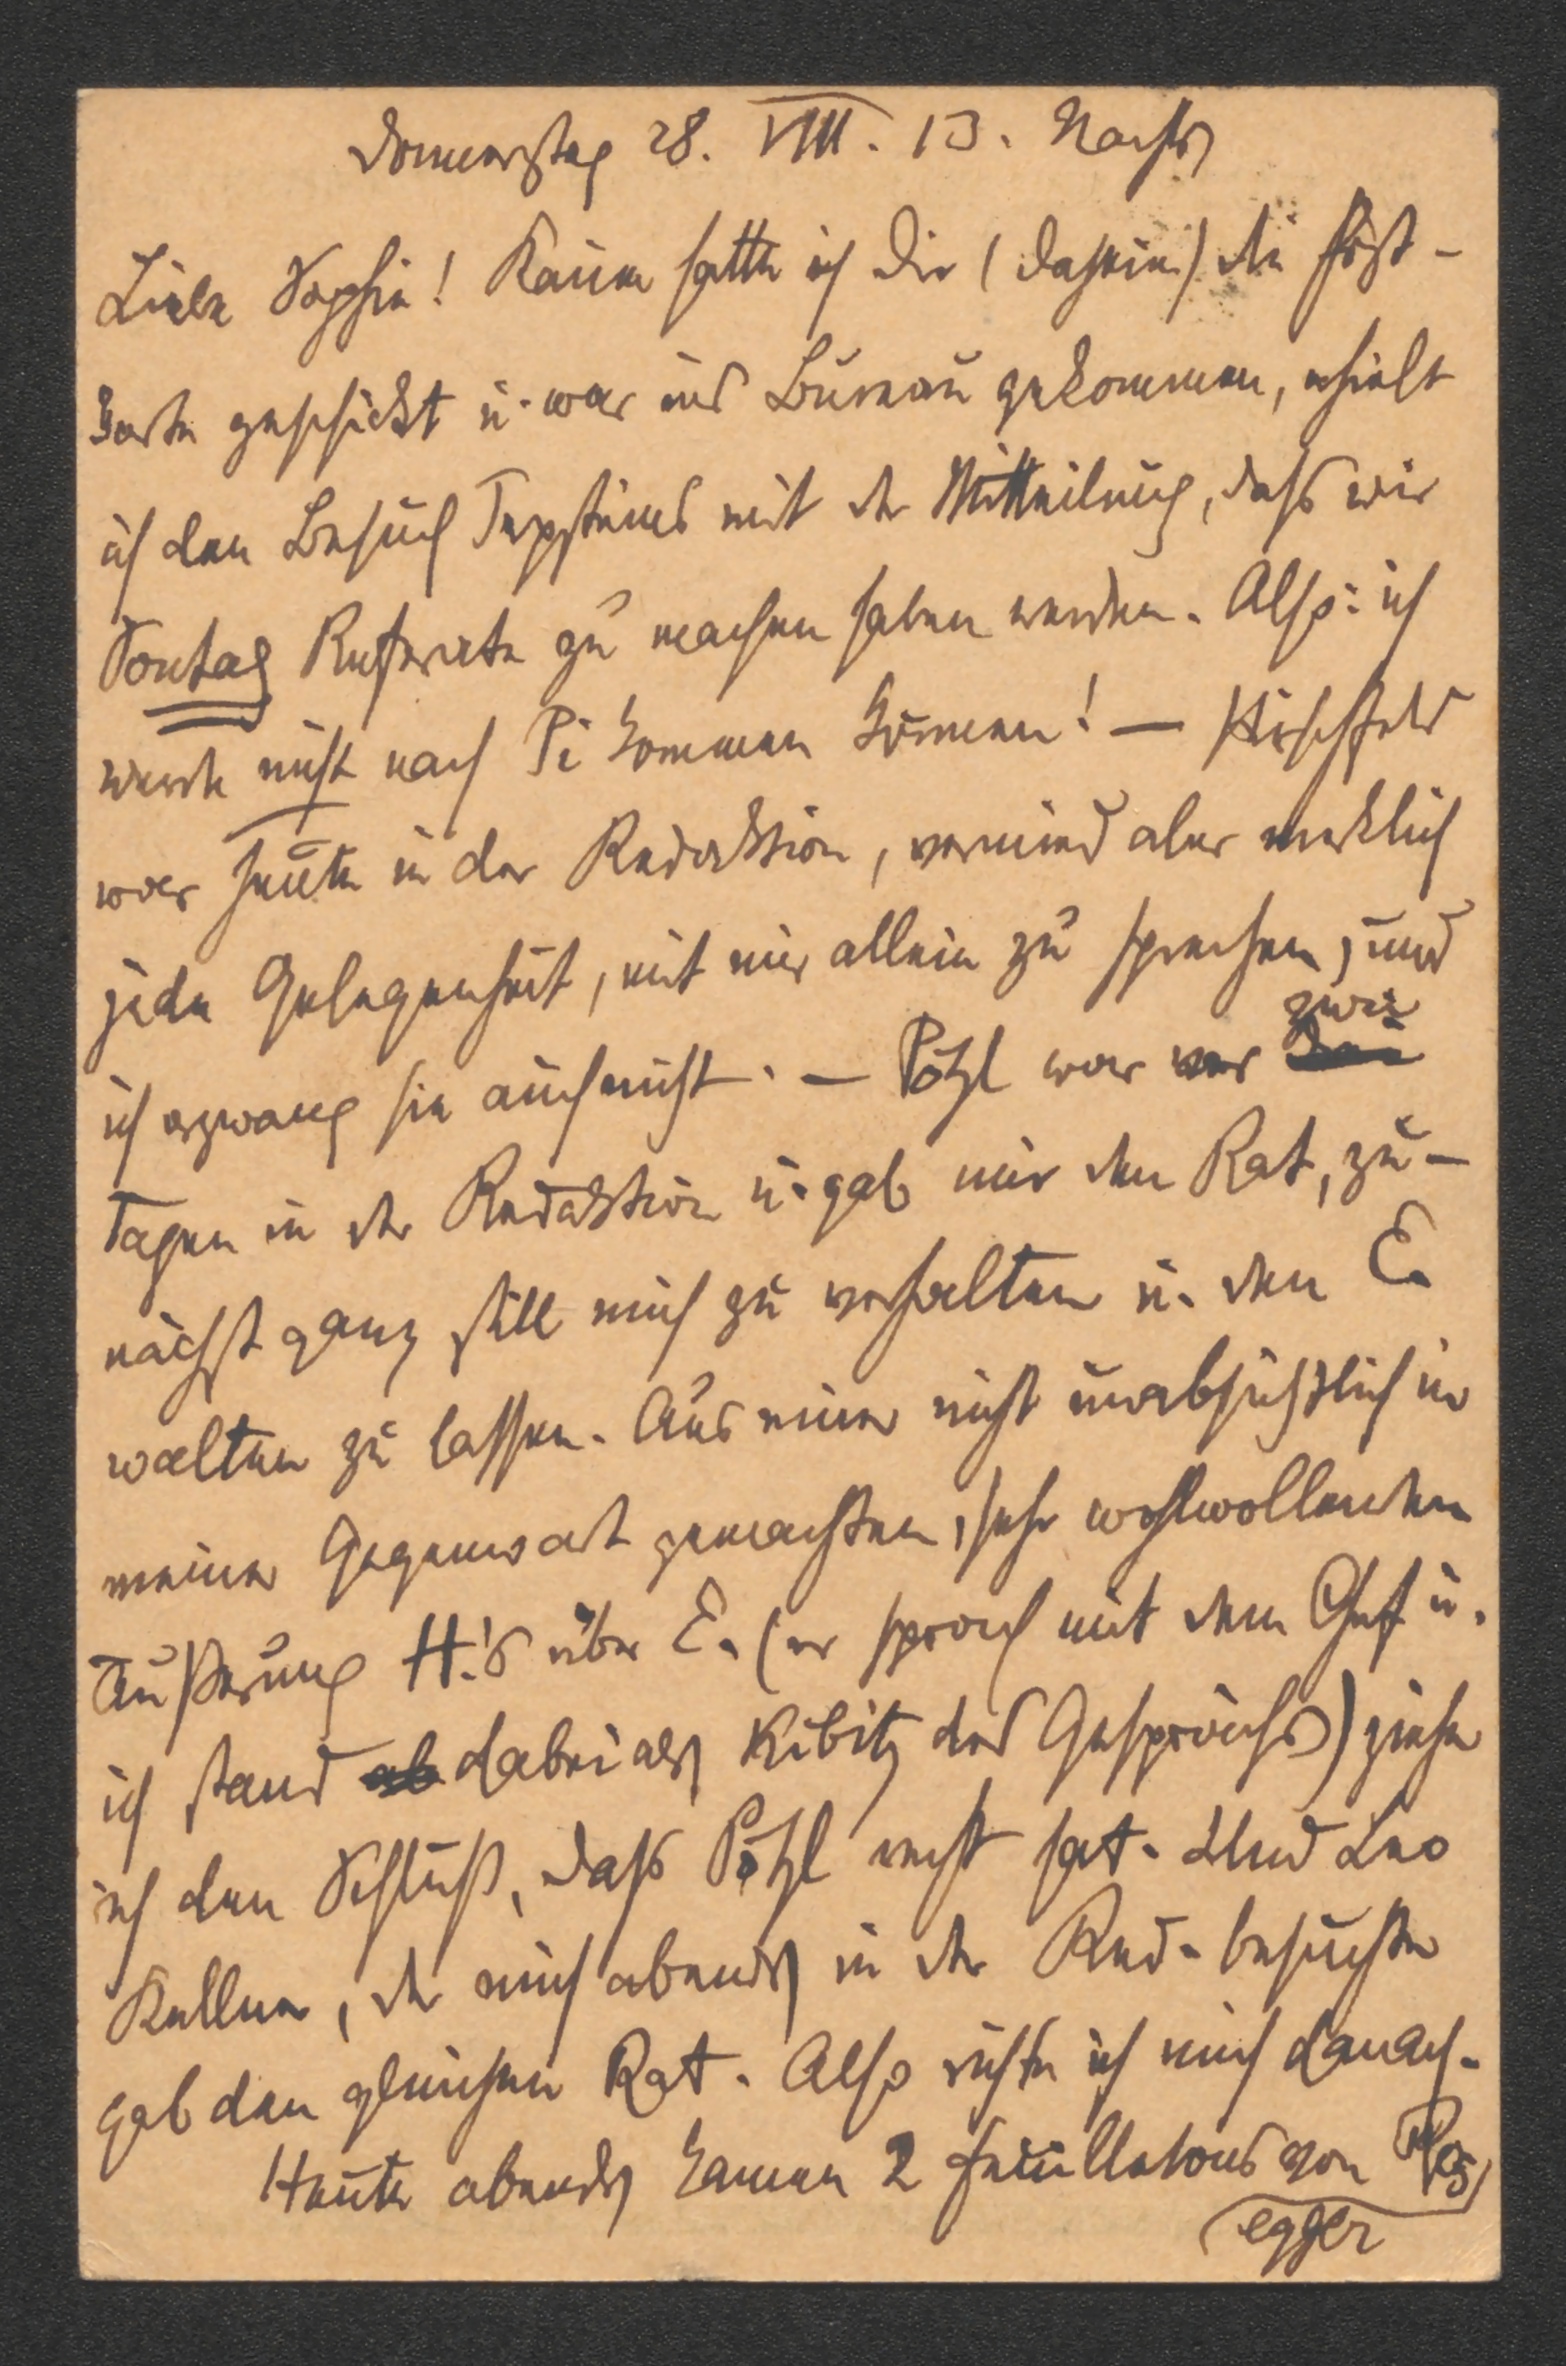 Donnerstag 28. VIII. 13. Nachts
Liebe Sophie! Kaum hatte ich Dir (daheim) die Post-
karte geschickt u. war ins Bureau gekommen, erhielt
ich den Besuch Tepsteins mit der Mitteilung, daß wir
Sontag Referate zu machen haben werden. Also: ich
werde nicht nach Pi kommen können! — Hirschfeld
war heute in der Redaktion, vermied aber merklich
jede Gelegenheit, mit mir allein zu sprechen, und
ich erzwang sie auch nicht. — Pötzl war vor zwei
Tagen in der Redaktion u. gab mir den Rat, zu-
nächst ganz still mich zu verhalten u. den E.
walten zu lassen. Aus einer nicht unabsichtlich in
meiner Gegenwart gemachten, sehr wohlwollenden
Äußerung H.'s über E. (er sprach mit dem Chef u.
ich stand dabei als Kibitz des Gesprächs) ziehe
ich den Schluß, daß Pötzl recht hat. Und Leo
Kellner, der mich abends in der Red. besuchte
gab den gleichen Rat. Also richte ich mich danach.
Heute abends kamen 2 Feuilletons von Ros
egger